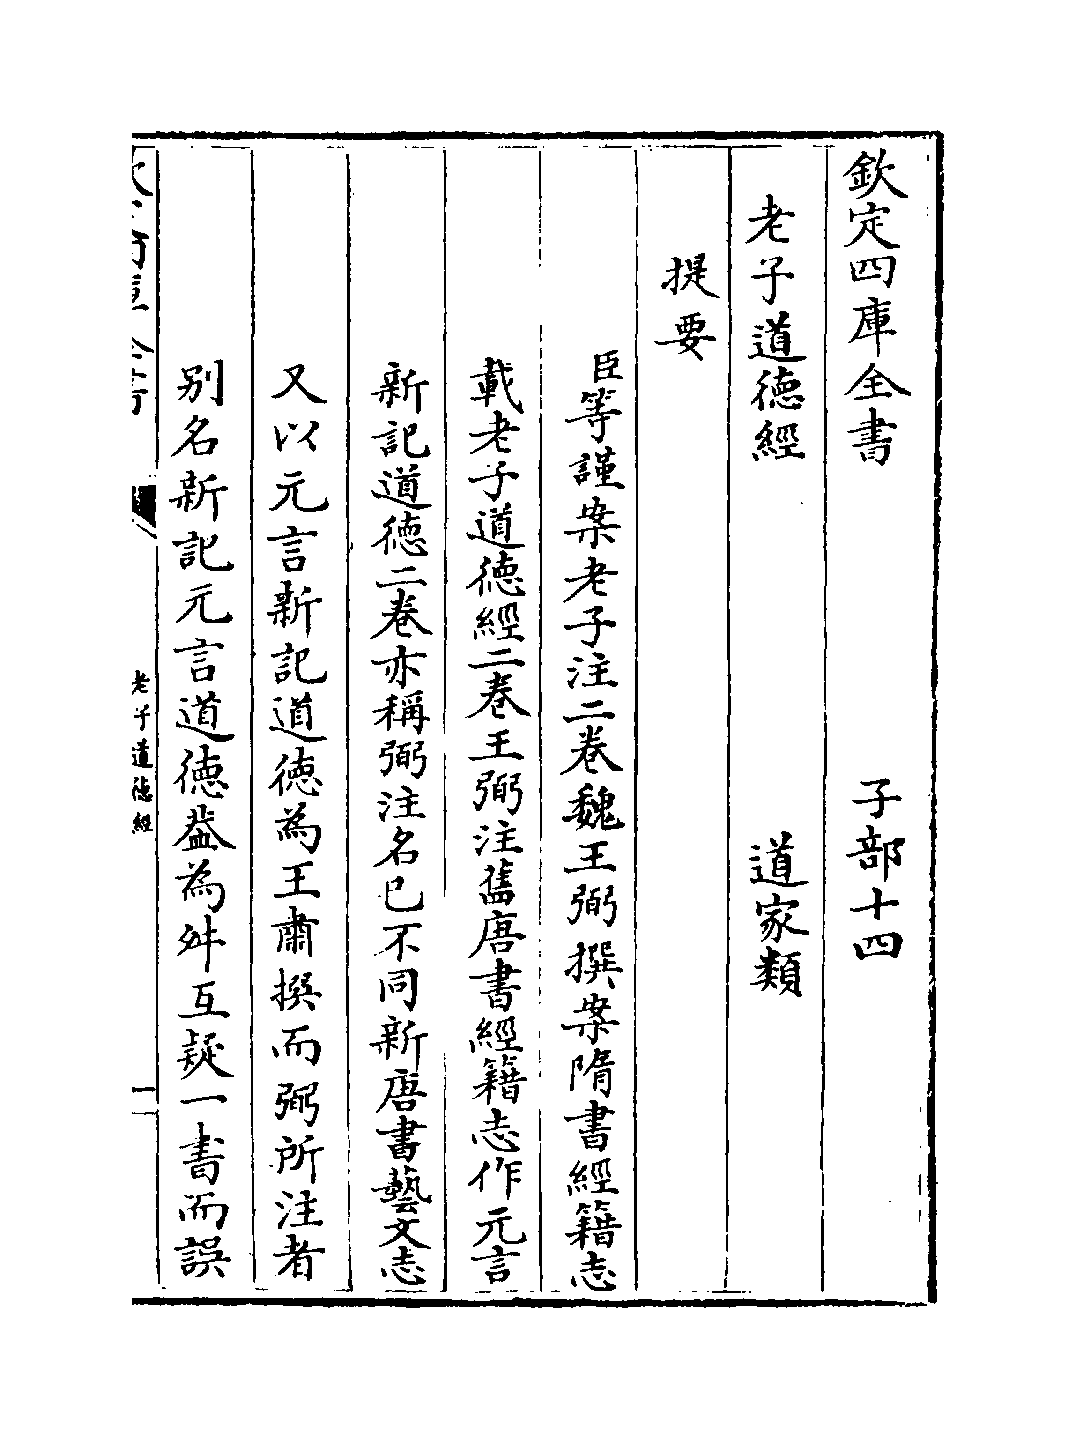 欽定四庫全書　子部十四
老子道德經　道家類
提要
臣等謹案老子注二卷魏王弼撰案隋書經籍志
載老子道德經二卷王弼注舊唐書經籍志作元言
新記道德二卷亦稱弼注名已不同新唐書藝文志
又以元言新記道德為王肅撰而弼所注者
别名新記元言道德葢為舛互疑一書而誤
老子道德經
一